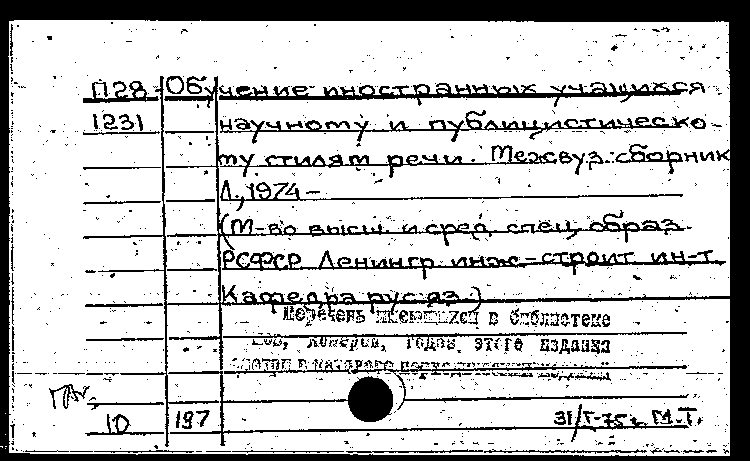 П28 Обучение иностранных учащихся
1231 научному и публицистическо-
му стилям речи. Межвуз. сборник
Л., 1974 –
(М-во высш. и сред. спец. образ.
РСФСР Ленингр. инж.-строит. ин-т.
Кафедра рус. яз.)
Перечень имеющихся в библиотеке
номеров, годов этого издания
10 197 31/I-75 г. М.Т.